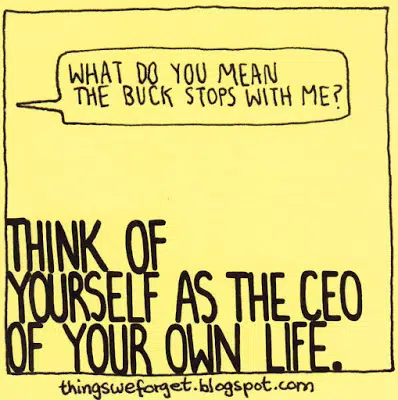 WHAT DO YOU MEAN
THE BUCK STOPS WITH ME?
THINK OF
YOURSELF AS THE CEO
OF YOUR OWN LIFE.
thingsweforget.blogspot.com